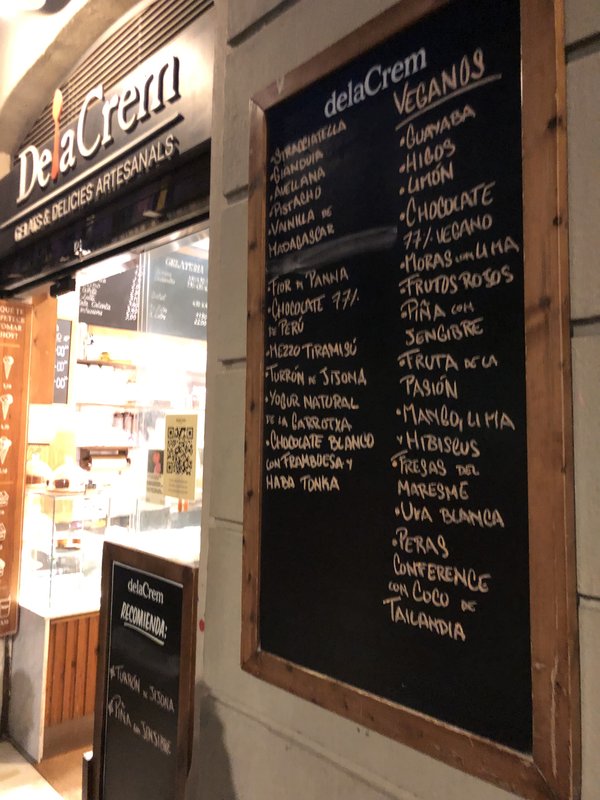 DelaCrem
GELATS & DELÍCIES ARTESANALS
GELATERIA
QUE TE
APETECE
TOMAR
HOY?
delaCrem
RECOMIENDA:
* TURRÓN DE JIJONA
* PIÑA CON JENGIBRE
delaCrem
• STRACCIATELLA
• GIANDUIA
• AVELLANA
• PISTACHO
• VAINILLA DE
MADAGASCAR
• FIOR DI PANNA
• CHOCOLATE 77%
DE PERÚ
• MEZZO TIRAMISÚ
• TURRÓN DE JIJONA
• YOGUR NATURAL
DE LA GARROTXA
• CHOCOLATE BLANCO
CON FRAMBOESA Y
HABA TONKA
VEGANOS
• GUAYABA
• HIGOS
• LIMÓN
• CHOCOLATE
77% VEGANO
• MORAS CON LIMA
FRUTOS ROJOS
• PIÑA CON
JENGIBRE
FRUTA DE LA
PASIÓN
• MANGO, LIMA
Y HIBISCUS
• FRESAS DEL
MARESME
• UVA BLANCA
• PERAS
CONFERENCE
CON COCO DE
TAILANDIA